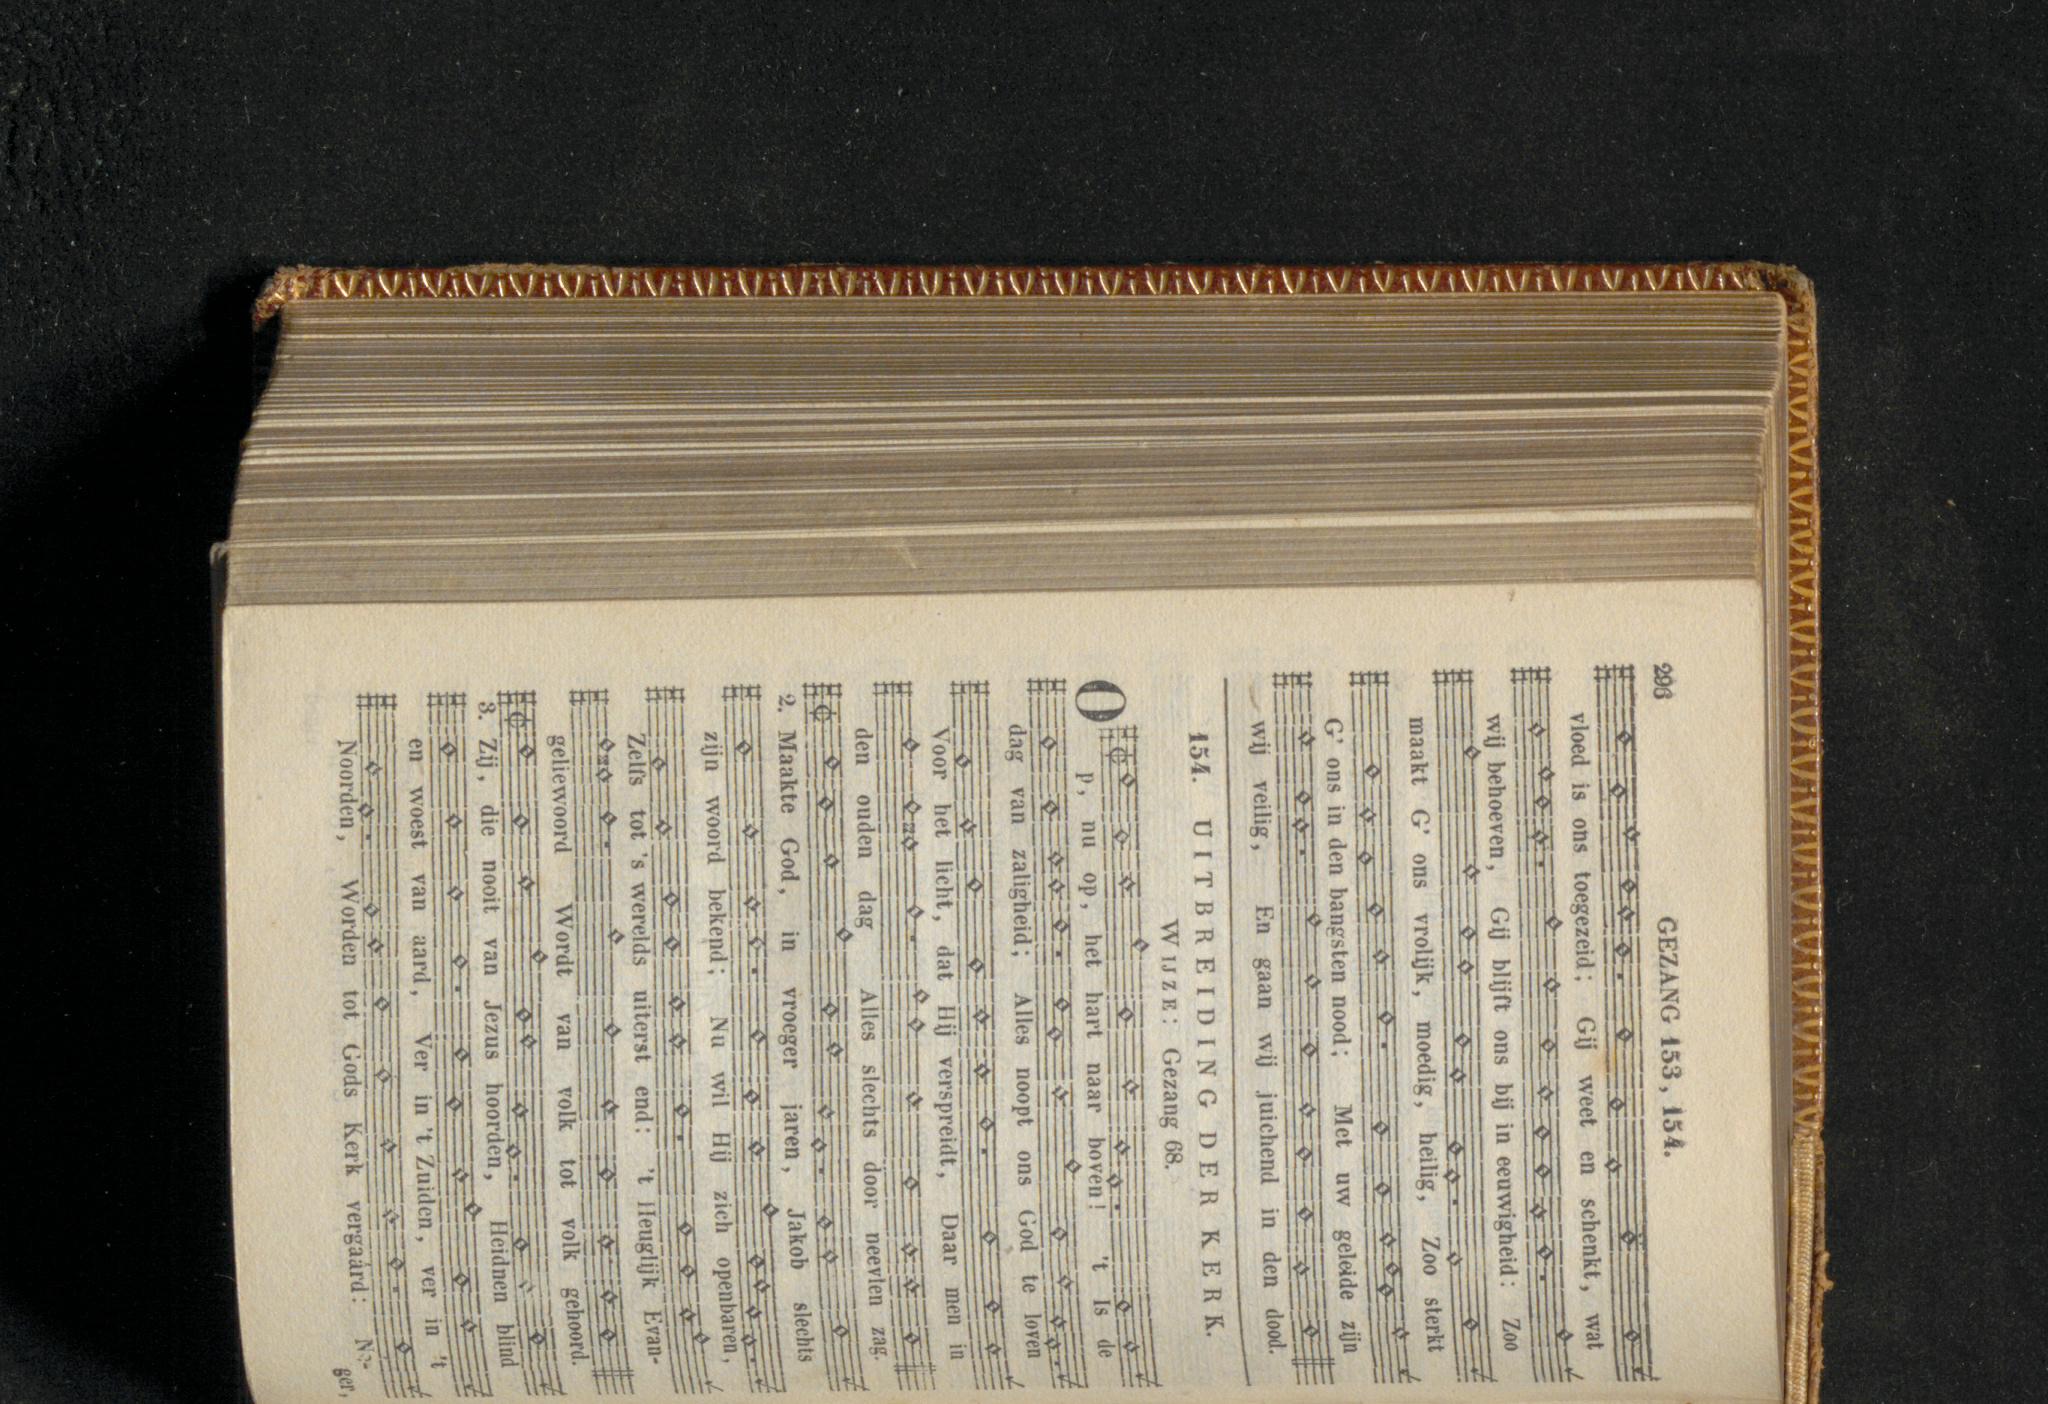 296
GEZANG 153, 154.
vloed is ons toegezeid; Gij weet en schenkt, wat
wij behoeven, Gij blijft ons bij in eeuwigheid: Zoo
maakt G' ons vrolijk, moedig, heilig, Zoo sterkt
G' ons in den bangsten nood; Met uw geleide zijn
wij veilig, En gaan wij juichend in den dood.
154. UITBREIDING DER KERK.
WIJZE: Gezang 68.
Op, nu op, het hart naar boven! 't Is de
dag van zaligheid; Alles noopt ons God te loven
Voor het licht, dat Hij verspreidt, Daar men in
den ouden dag Alles slechts door neevlen zag.
2. Maakte God, in vroeger jaren, Jakob slechts
zijn woord bekend; Nu wil Hij zich openbaren,
Zelfs tot 's werelds uiterst end: 't Heuglijk Evan-
geliewoord Wordt van volk tot volk gehoord.
3. Zij, die nooit van Jezus hoorden, Heidnen blind
en woest van aard, Ver in 't Zuiden, ver in 't
Noorden, Worden tot Gods Kerk vergaârd: Ne-
ger,